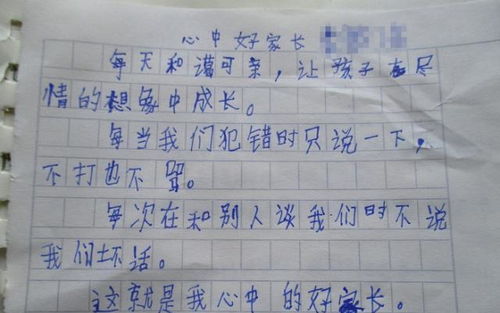 心中好家长
每天和谐可亲，让孩子在尽
情的想象中成长。
每当我们犯错时只说一下，
不打也不骂。
每次在和别人谈我们时不说
我们坏话。
这就是我心中的好家长。